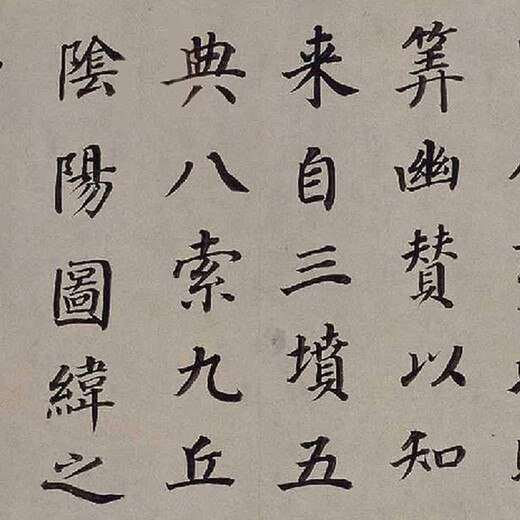 筭幽賛以知
来自三墳五
典八索九丘
陰陽圖緯之